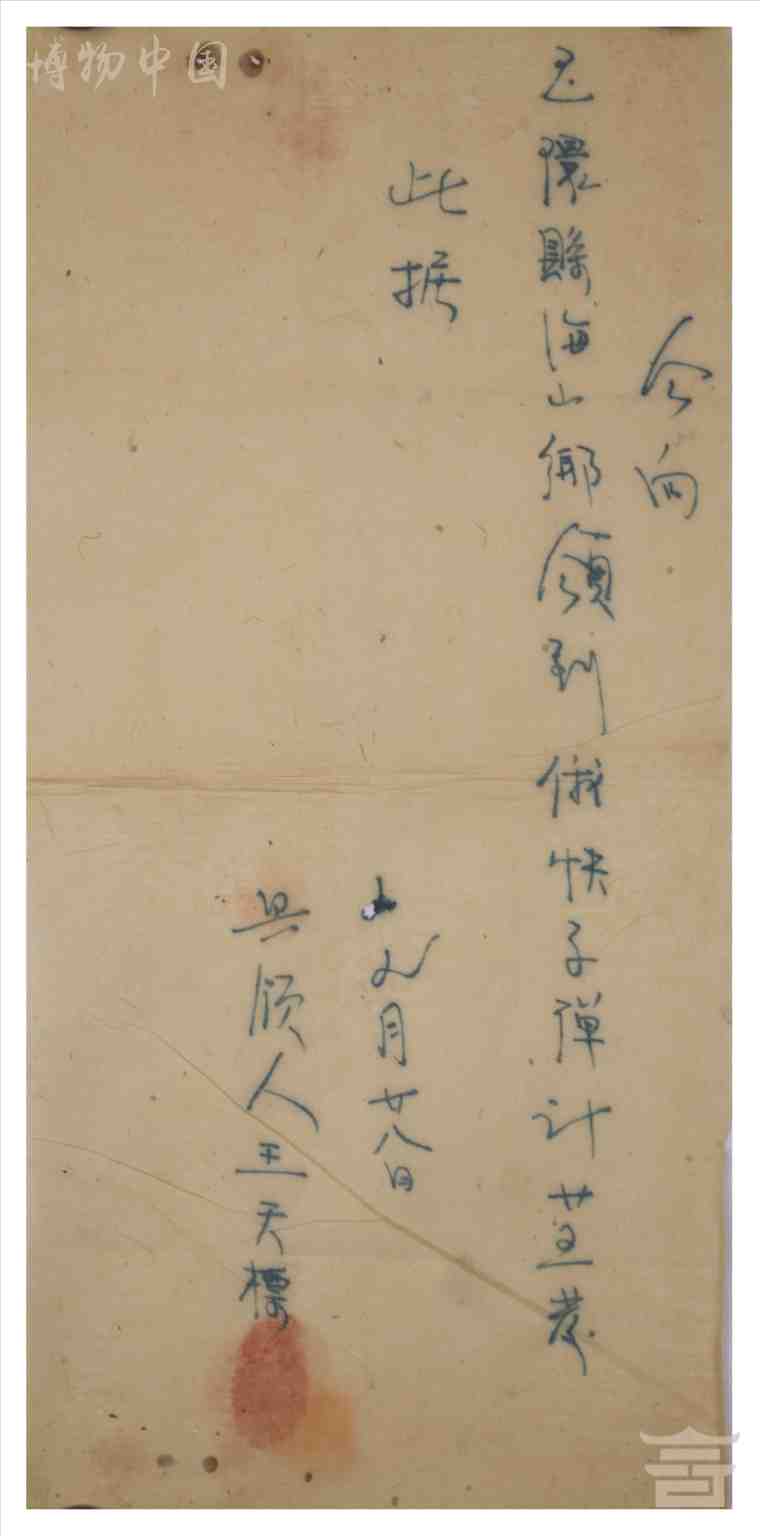 今向
玉環縣海山鄉領到俄快子彈計廿五發
此据
九月廿八日
具領人王天標
博物中国